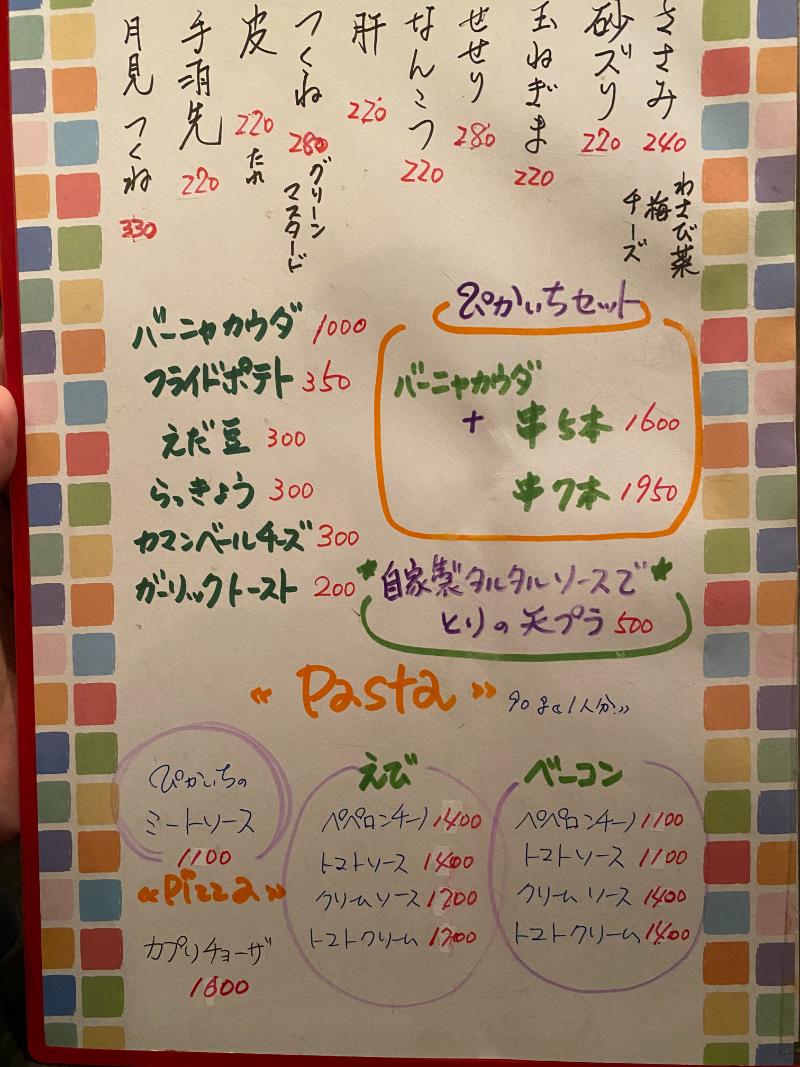 ささみ 240
わさび菜
梅
チーズ
砂ズリ 220
玉ねぎま 220
せせり 280
なんこつ 220
肝 220
つくね 280
グリーン
マスタード
皮 220
たれ
手羽先 220
月見つくね 330
バーニャカウダ 1000
フライドポテト 350
えだ豆 300
らっきょう 300
カマンベールチーズ 300
ガーリックトースト 200
ぴかいちセット
バーニャカウダ
+ 串5本 1600
串7本 1950
自家製タルタルソースで
とりの天プラ 500
《Pasta》
ぴかいちの
ミートソース
1100
えび
ペペロンチーノ 1400
トマトソース 1400
クリームソース 1700
トマトクリーム 1700
ベーコン
ペペロンチーノ 1100
トマトソース 1100
クリームソース 1400
トマトクリーム 1400
《Pizza》
カプリチョーザ